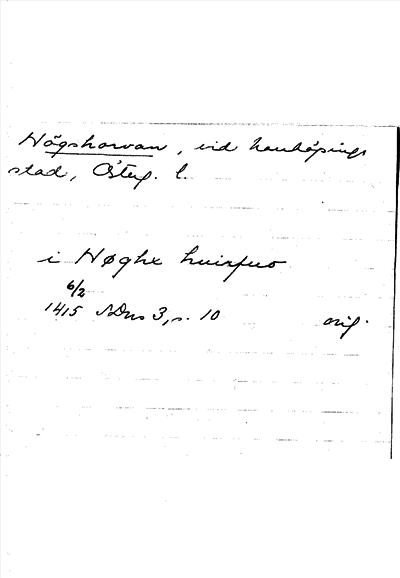 Högshorvan, vid Linköpings
stad, Österg. l.
i Høghx huirfuo
6/2
1415 SDns 3, s. 10 orig.